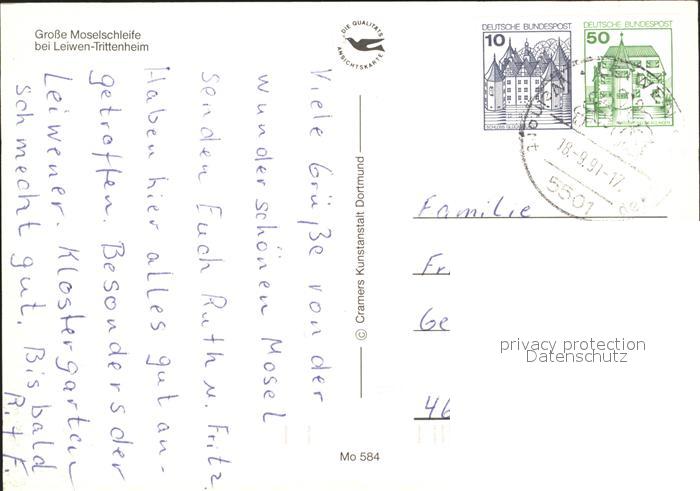 Große Moselschleife
bei Leiwen-Trittenheim
DIE QUALITÄTS
ANSICHTSKARTE
DEUTSCHE BUNDESPOST
10
DEUTSCHE BUNDESPOST
50
18.-9.91-17
5501
Viele Grüße von der
wunderschönen Mosel
senden Euch Ruth u. Fritz.
Haben hier alles gut an-
getroffen. Besonders der
Leiwener. Klostergarten
schmeckt gut. Bis bald
R. + F.
© Cramers Kunstanstalt Dortmund
Familie
Fr.
Ge
46
privacy protection
Datenschutz
Mo 584